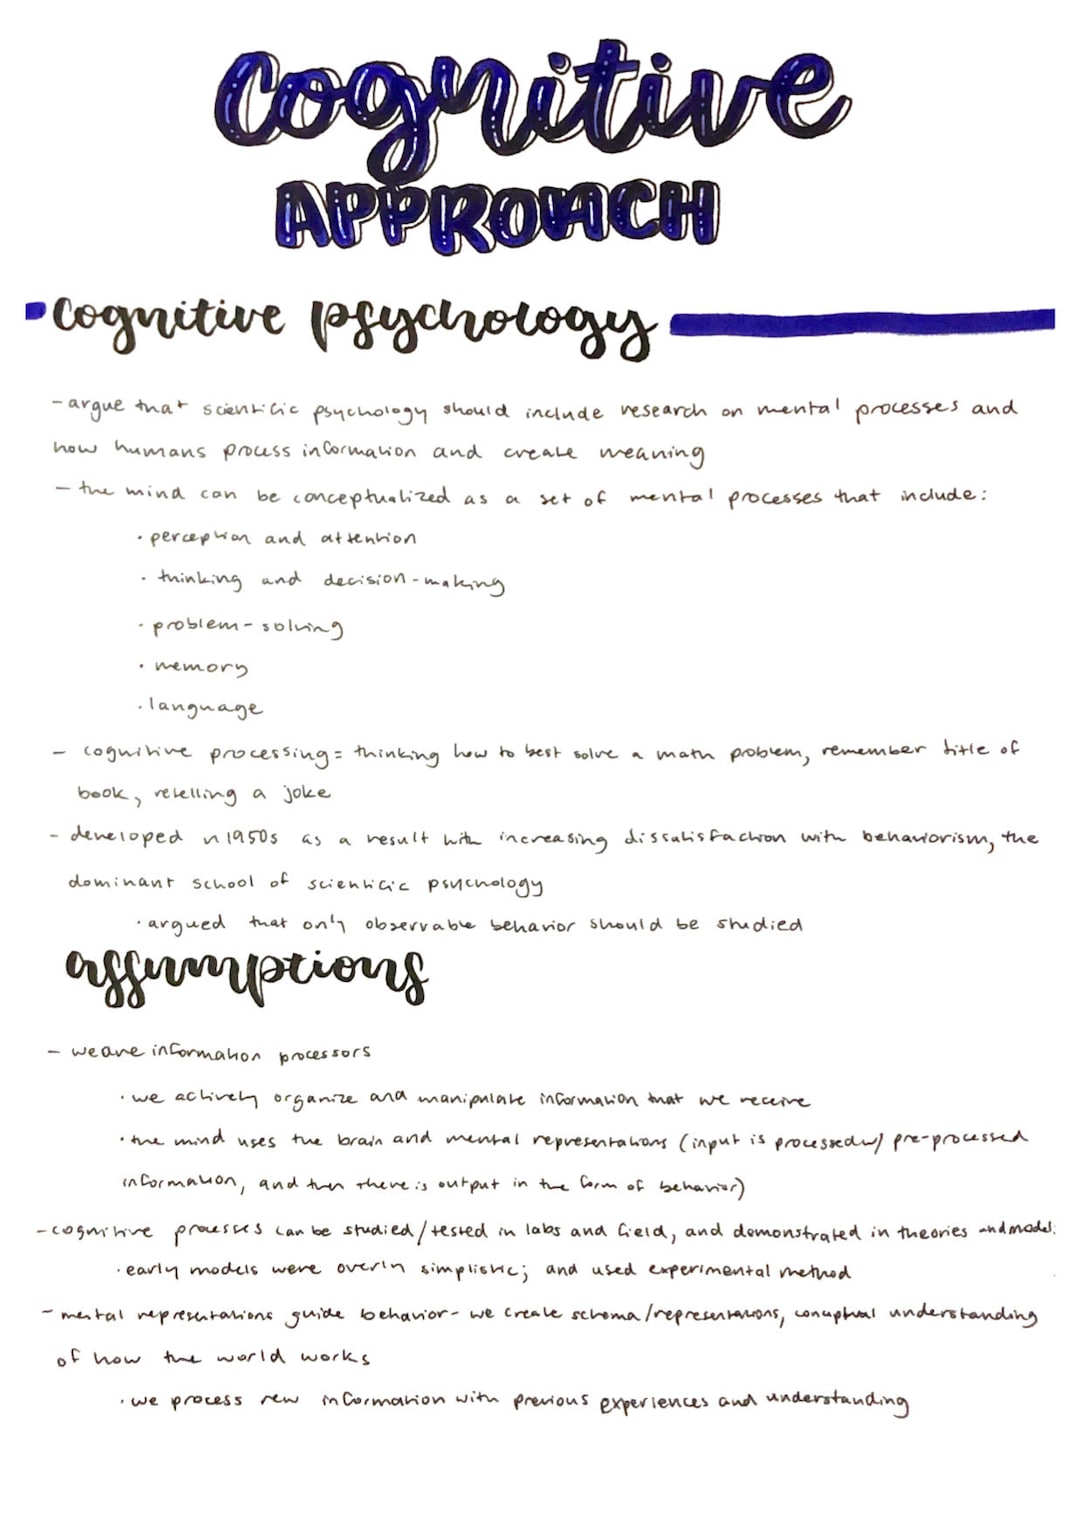 Cognitive
APPROACH
cognitive psychology
- argue that scientific psychology should include research on mental processes and
how humans process information and create meaning
- the mind can be conceptualized as a set of mental processes that include:
· perception and attention
· thinking and decision-making
· problem-solving
· memory
· language
- cognitive processing = thinking how to best solve a math problem, remember title of
book, retelling a joke
- developed n 1950s as a result with increasing dissatisfaction with behaviorism, the
dominant school of scientific psychology
· argued that only observable behavior should be studied
assumptions
- we are information processors
· we actively organize and manipulate information that we receive
· the mind uses the brain and mental representations (input is processed w/ pre-processed
information, and then there is output in the form of behavior)
- cognitive processes can be studied/tested in labs and field, and demonstrated in theories and models
· early models were overly simplistic; and used experimental method
- mental representations guide behavior - we create schema/representations, conceptual understanding
of how the world works
· we process new information with previous experiences and understanding